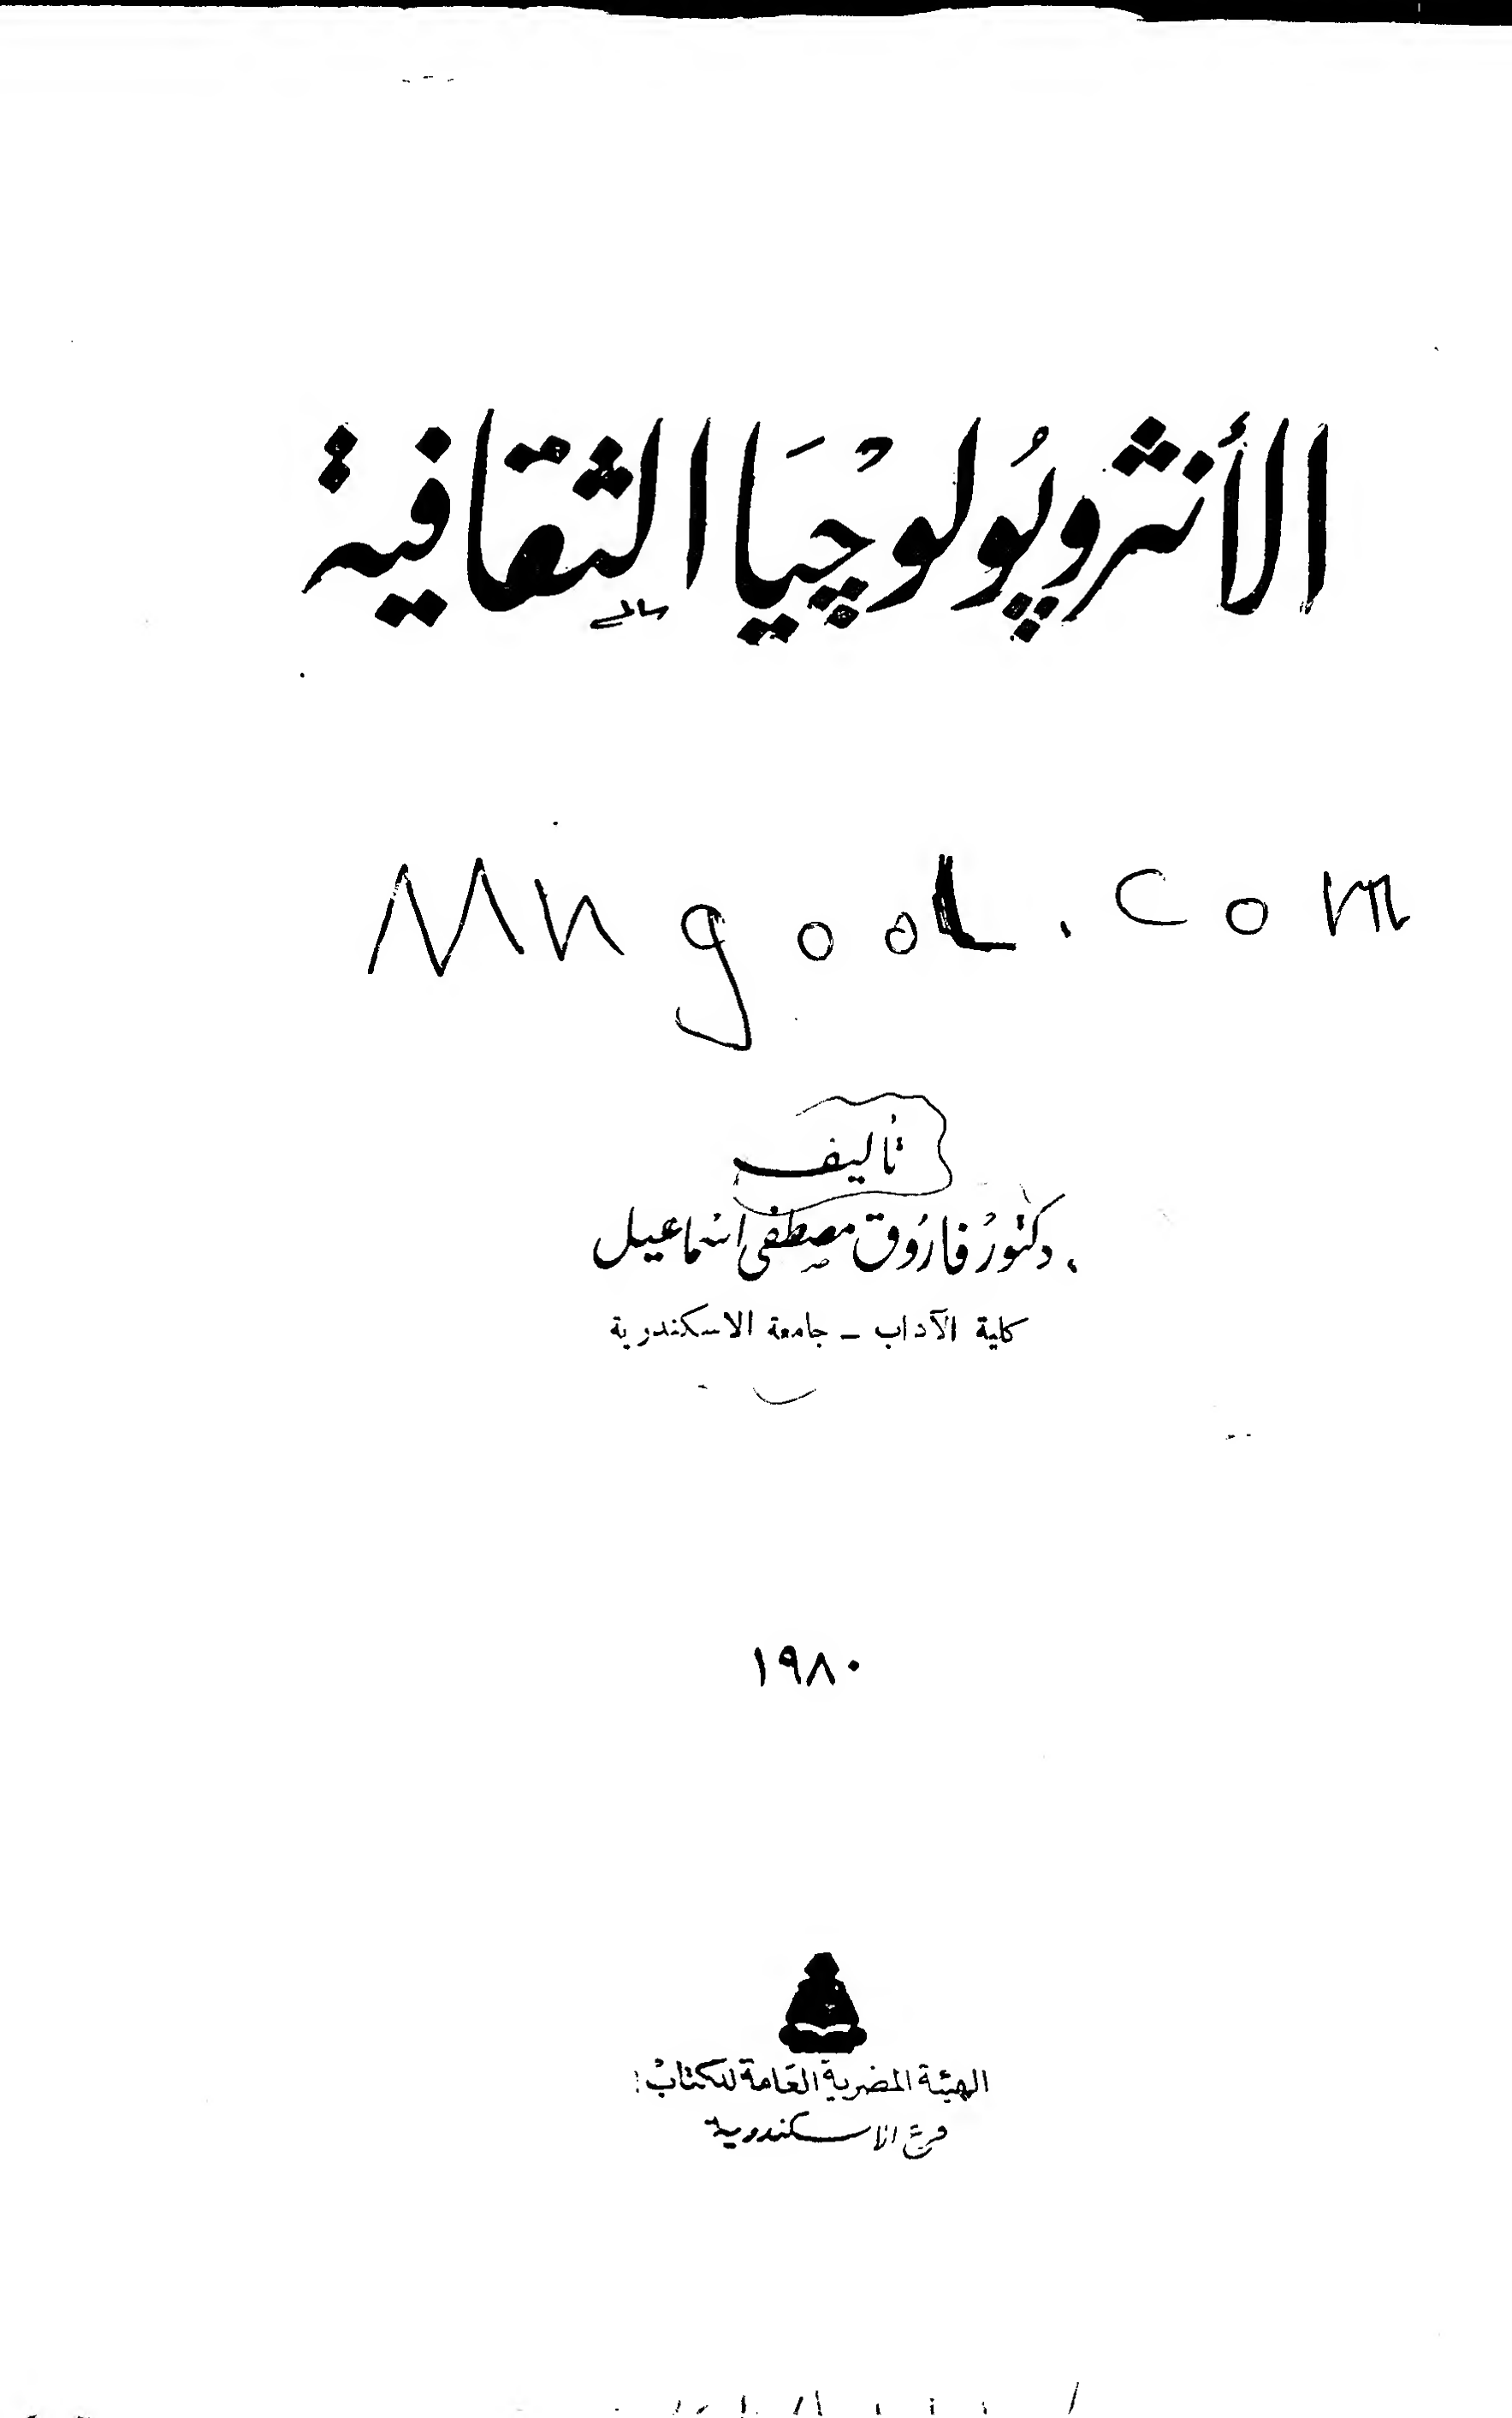 الأنثروپولوچيا الثقافية
Mngool.com
تأليف
دكتور فاروق مصطفى اسماعيل
كلية الآداب ــ جامعة الاسكندرية
١٩٨٠
الهيئة المصرية العامة للكتاب
فرع الاسكندرية